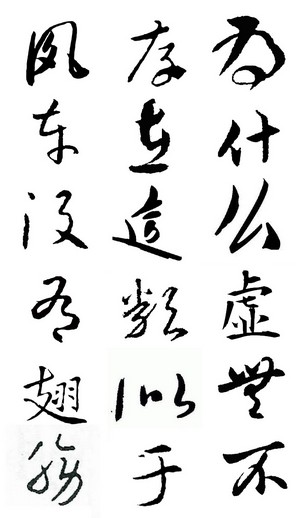 为什么虚無不
存在這類似于
风车没有翅膀